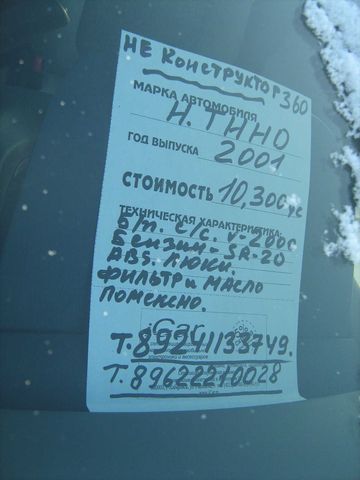 НЕ КОНСТРУКТОР 360
МАРКА АВТОМОБИЛЯ
Н. ТИНО
ГОД ВЫПУСКА 2001
СТОИМОСТЬ 10,300 уе
ТЕХНИЧЕСКАЯ ХАРАКТЕРИСТИКА:
б/п. с/с. V-2000
Бензин - SR-20
ABS. ЛЮКИ.
ФИЛЬТР и МАСЛО
ПОМЕНЕНО.
Т. 89241133749.
Т. 89622210028